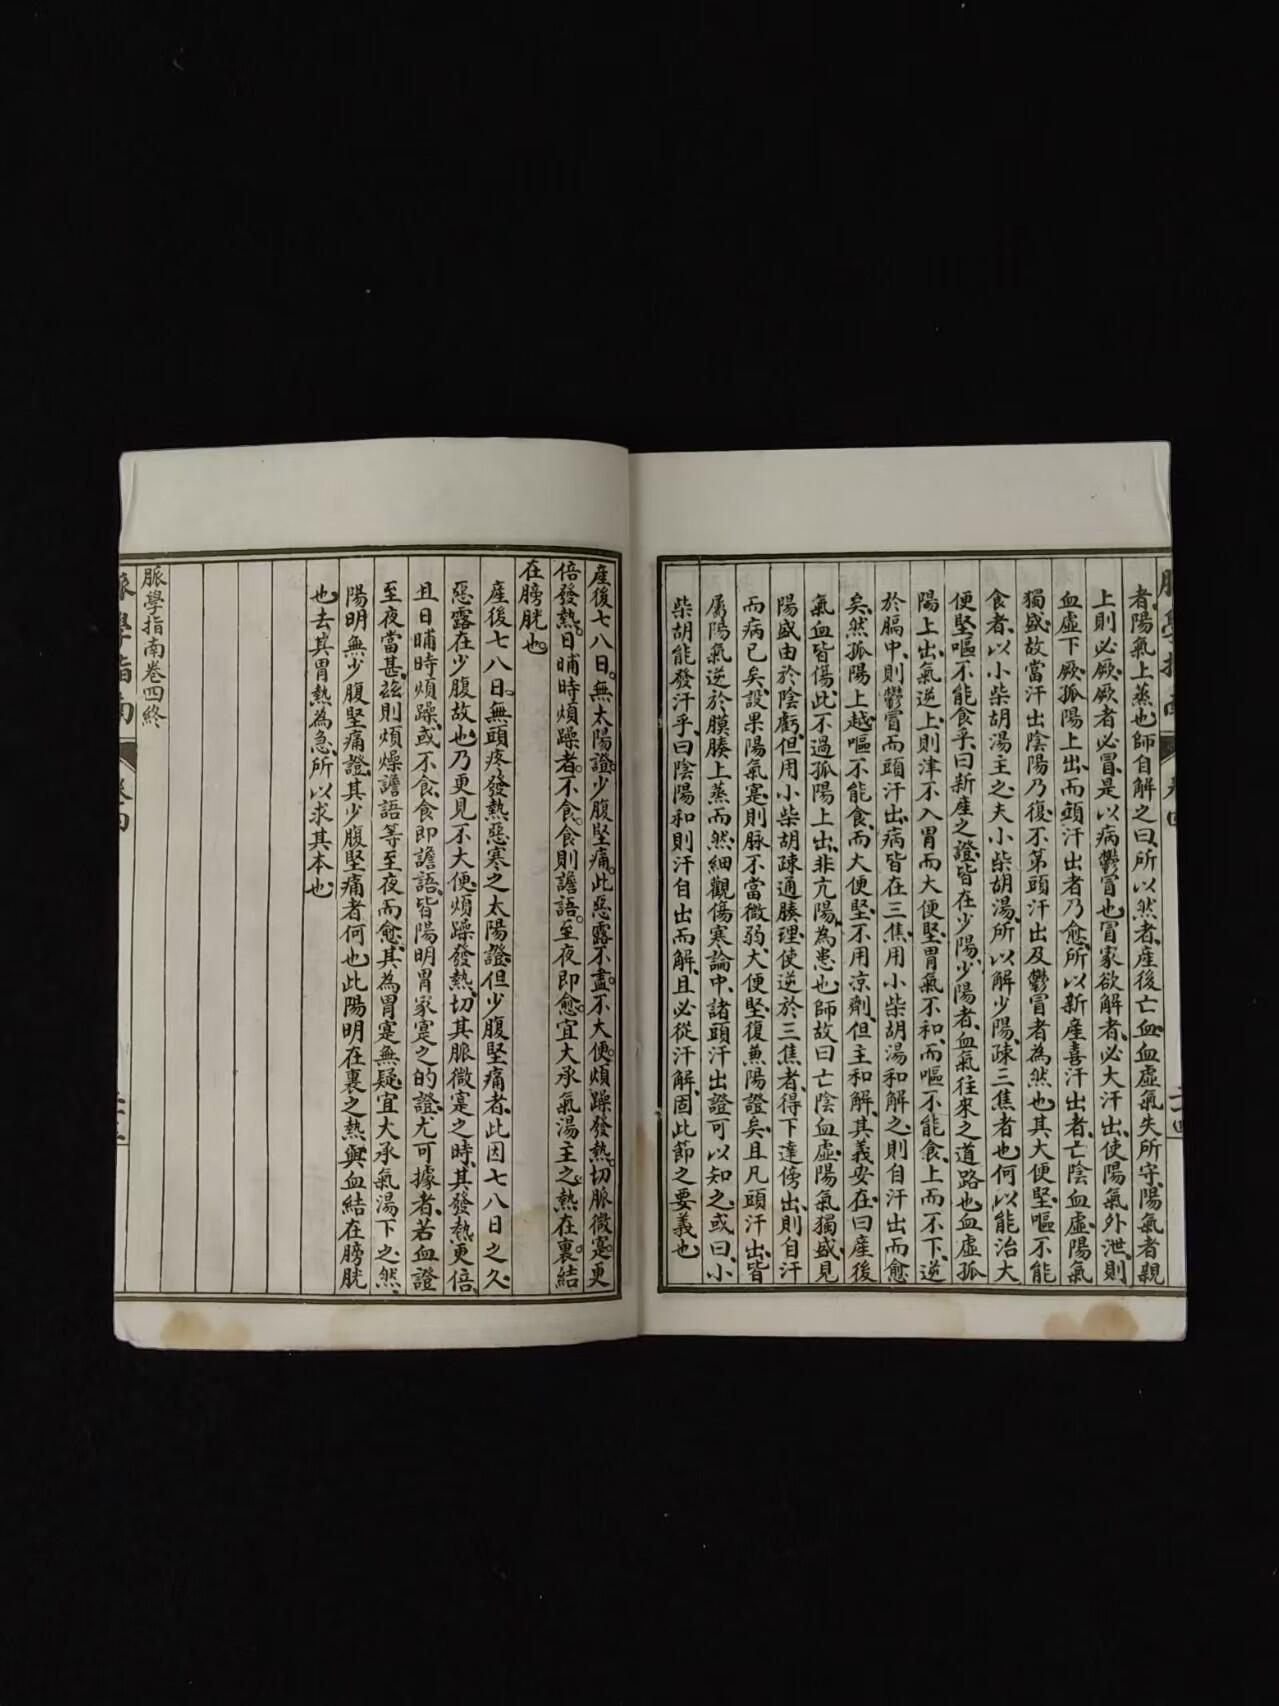 者陽氣上蒸也師自解之曰所以然者產後亡血血虛氣失所守陽氣者親
上則必厥厥者必冒是以病鬱冒也冒家欲解者必大汗出使陽氣外泄則
血虛下厥孤陽上出而頭汗出者乃愈所以新產喜汗出者亡陰血虛陽氣
獨盛故當汗出陰陽乃復不第頭汗出及鬱冒者為然也其大便堅嘔不能
食者以小柴胡湯主之夫小柴胡湯所以解少陽疎三焦者也何以能治大
便堅嘔不能食乎曰新產之證皆在少陽少陽者血氣往來之道路也血虛孤
陽上出氣逆上則津不入胃而大便堅胃氣不和而嘔不能食上而不下逆
於膈中則鬱冒而頭汗出病皆在三焦用小柴胡湯和解之則自汗出而愈
矣然孤陽上越嘔不能食而大便堅不用凉劑但主和解其義安在曰產後
氣血皆傷此不過孤陽上出非亢陽為患也師故曰亡陰血虛陽氣獨盛見
陽盛由於陰虧但用小柴胡疎通腠理使逆於三焦者得下達傍出則自汗
而病已矣設果陽氣寔則脉不當微弱大便堅復兼陽證矣且凡頭汗出皆
屬陽氣逆於膜腠上蒸而然細觀傷寒論中諸頭汗出證可以知之或曰小
柴胡能發汗乎曰陰陽和則汗自出而解且必從汗解固此節之要義也
二四
產後七八日無太陽證少腹堅痛此惡露不盡不大便煩躁發熱切脈微寔更
倍發熱日晡時煩躁者不食食則譫語至夜即愈宜大承氣湯主之熱在裏結
在膀胱也
產後七八日無頭疼發熱惡寒之太陽證但少腹堅痛者此因七八日之久
惡露在少腹故也乃更見不大便煩躁發熱切其脈微寔之時其發熱更倍
且日晡時煩躁或不食食即譫語皆陽明胃家寔之的證尤可據者若血證
至夜當甚茲則煩燥譫語等至夜而愈其為胃寔無疑宜大承氣湯下之然
陽明無少腹堅痛證其少腹堅痛者何也此陽明在裏之熱與血結在膀胱
也去其胃熱為急所以求其本也
脈學指南卷四終